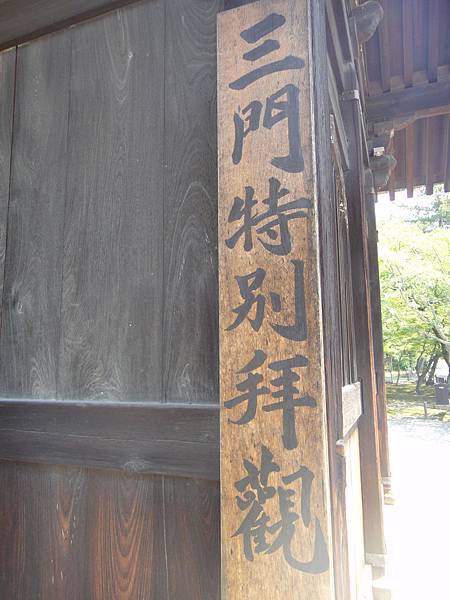 三門特別拝觀